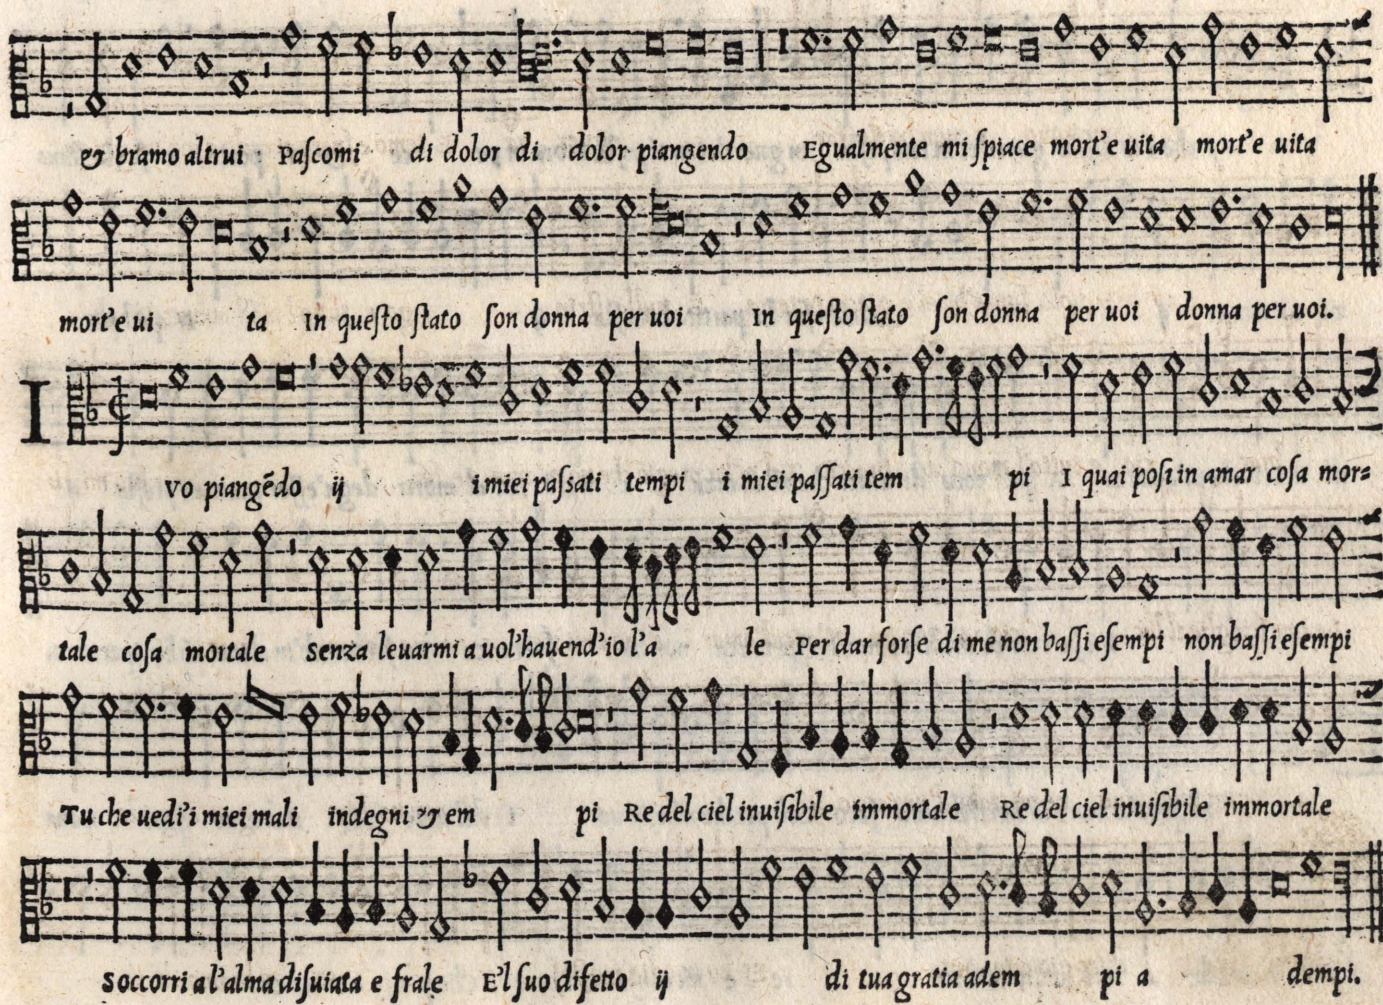 & bramo altrui : Paſcomi di dolor di dolor piangendo Egualmente mi ſpiace mort'e uita mort'e uita
mort'e ui ta In queſto ſtato ſon donna per uoi In queſto ſtato ſon donna per uoi donna per uoi.
I
vo piangẽdo ij i miei paſsati tempi i miei paſſati tem pi I quai poſi in amar coſa mor=
tale coſa mortale Senza leuarmi a uol'hauend'io l'a le Per dar forſe di me non baſſi eſempi non baſſi eſempi
Tu che uedi'i miei mali indegni & em pi Re del ciel inuiſibile immortale Re del ciel inuiſibile immortale
Soccorri a l'alma diſuiata e frale E'l ſuo difetto ij di tua gratia adem pi a dempi.